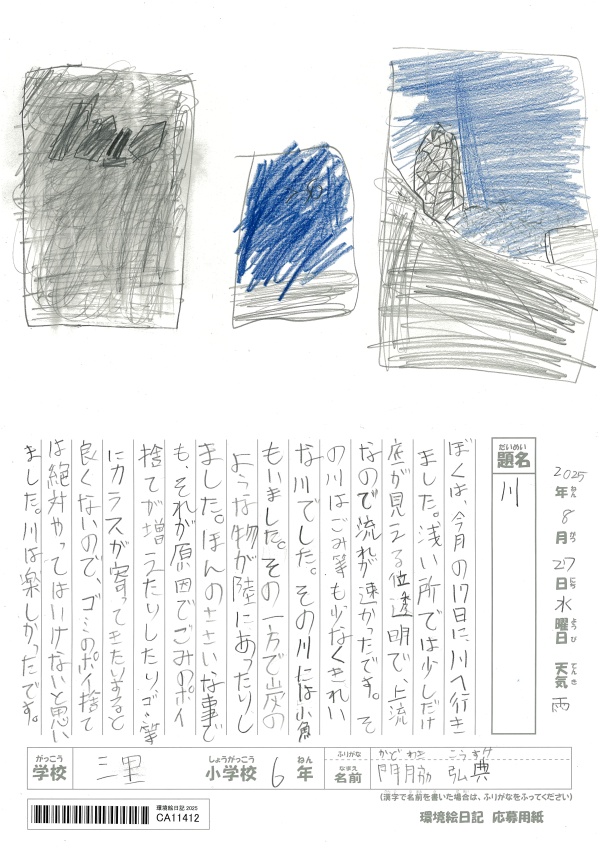 2025年ねん8月がつ27日にち水曜日ようび 天気てんき 雨
だいめい
題名
川
ぼくは、今月の17日に、川へ行き
ました。浅い所では少しだけ
底が見える位透明で、上流
なので流れが速かったです。そ
の川はごみ等も少なくきれい
な川でした。その川には小魚
もいました。その一方で炭の
ような物が陸にあったりし
ました。ほんのささいな事で
も、それが原因でごみのポイ
捨てが増えたりしたりゴミ等
にカラスが寄ってきたりすると
良くないので、ゴミのポイ捨て
は絶対やってはいけないと思い
ました。川は楽しかったです。
がっこう しょうがっこう ねん ふりがな かど わき こうすけ
学校 三里 小学校 6 年 なまえ 名前 門脇 弘典
(漢字で名前を書いた場合は、ふりがなをふってください)
環境絵日記 2025
CA11412
環境絵日記 応募用紙